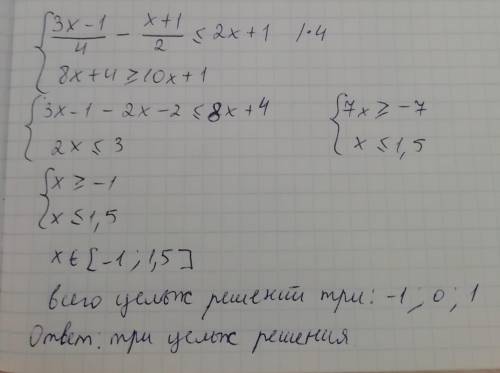 { (3x-1)/4 - (x+1)/2 ≤ 2x+1 /·4
8x+4 ≥ 10x+1
{ 3x-1-2x-2 ≤ 8x+4 { 7x ≥ -7
2x ≤ 3 x ≤ 1,5
{ x ≥ -1
x ≤ 1,5
x ∈ [-1; 1,5]
всего целых решений три: -1; 0; 1
Ответ: три целых решения